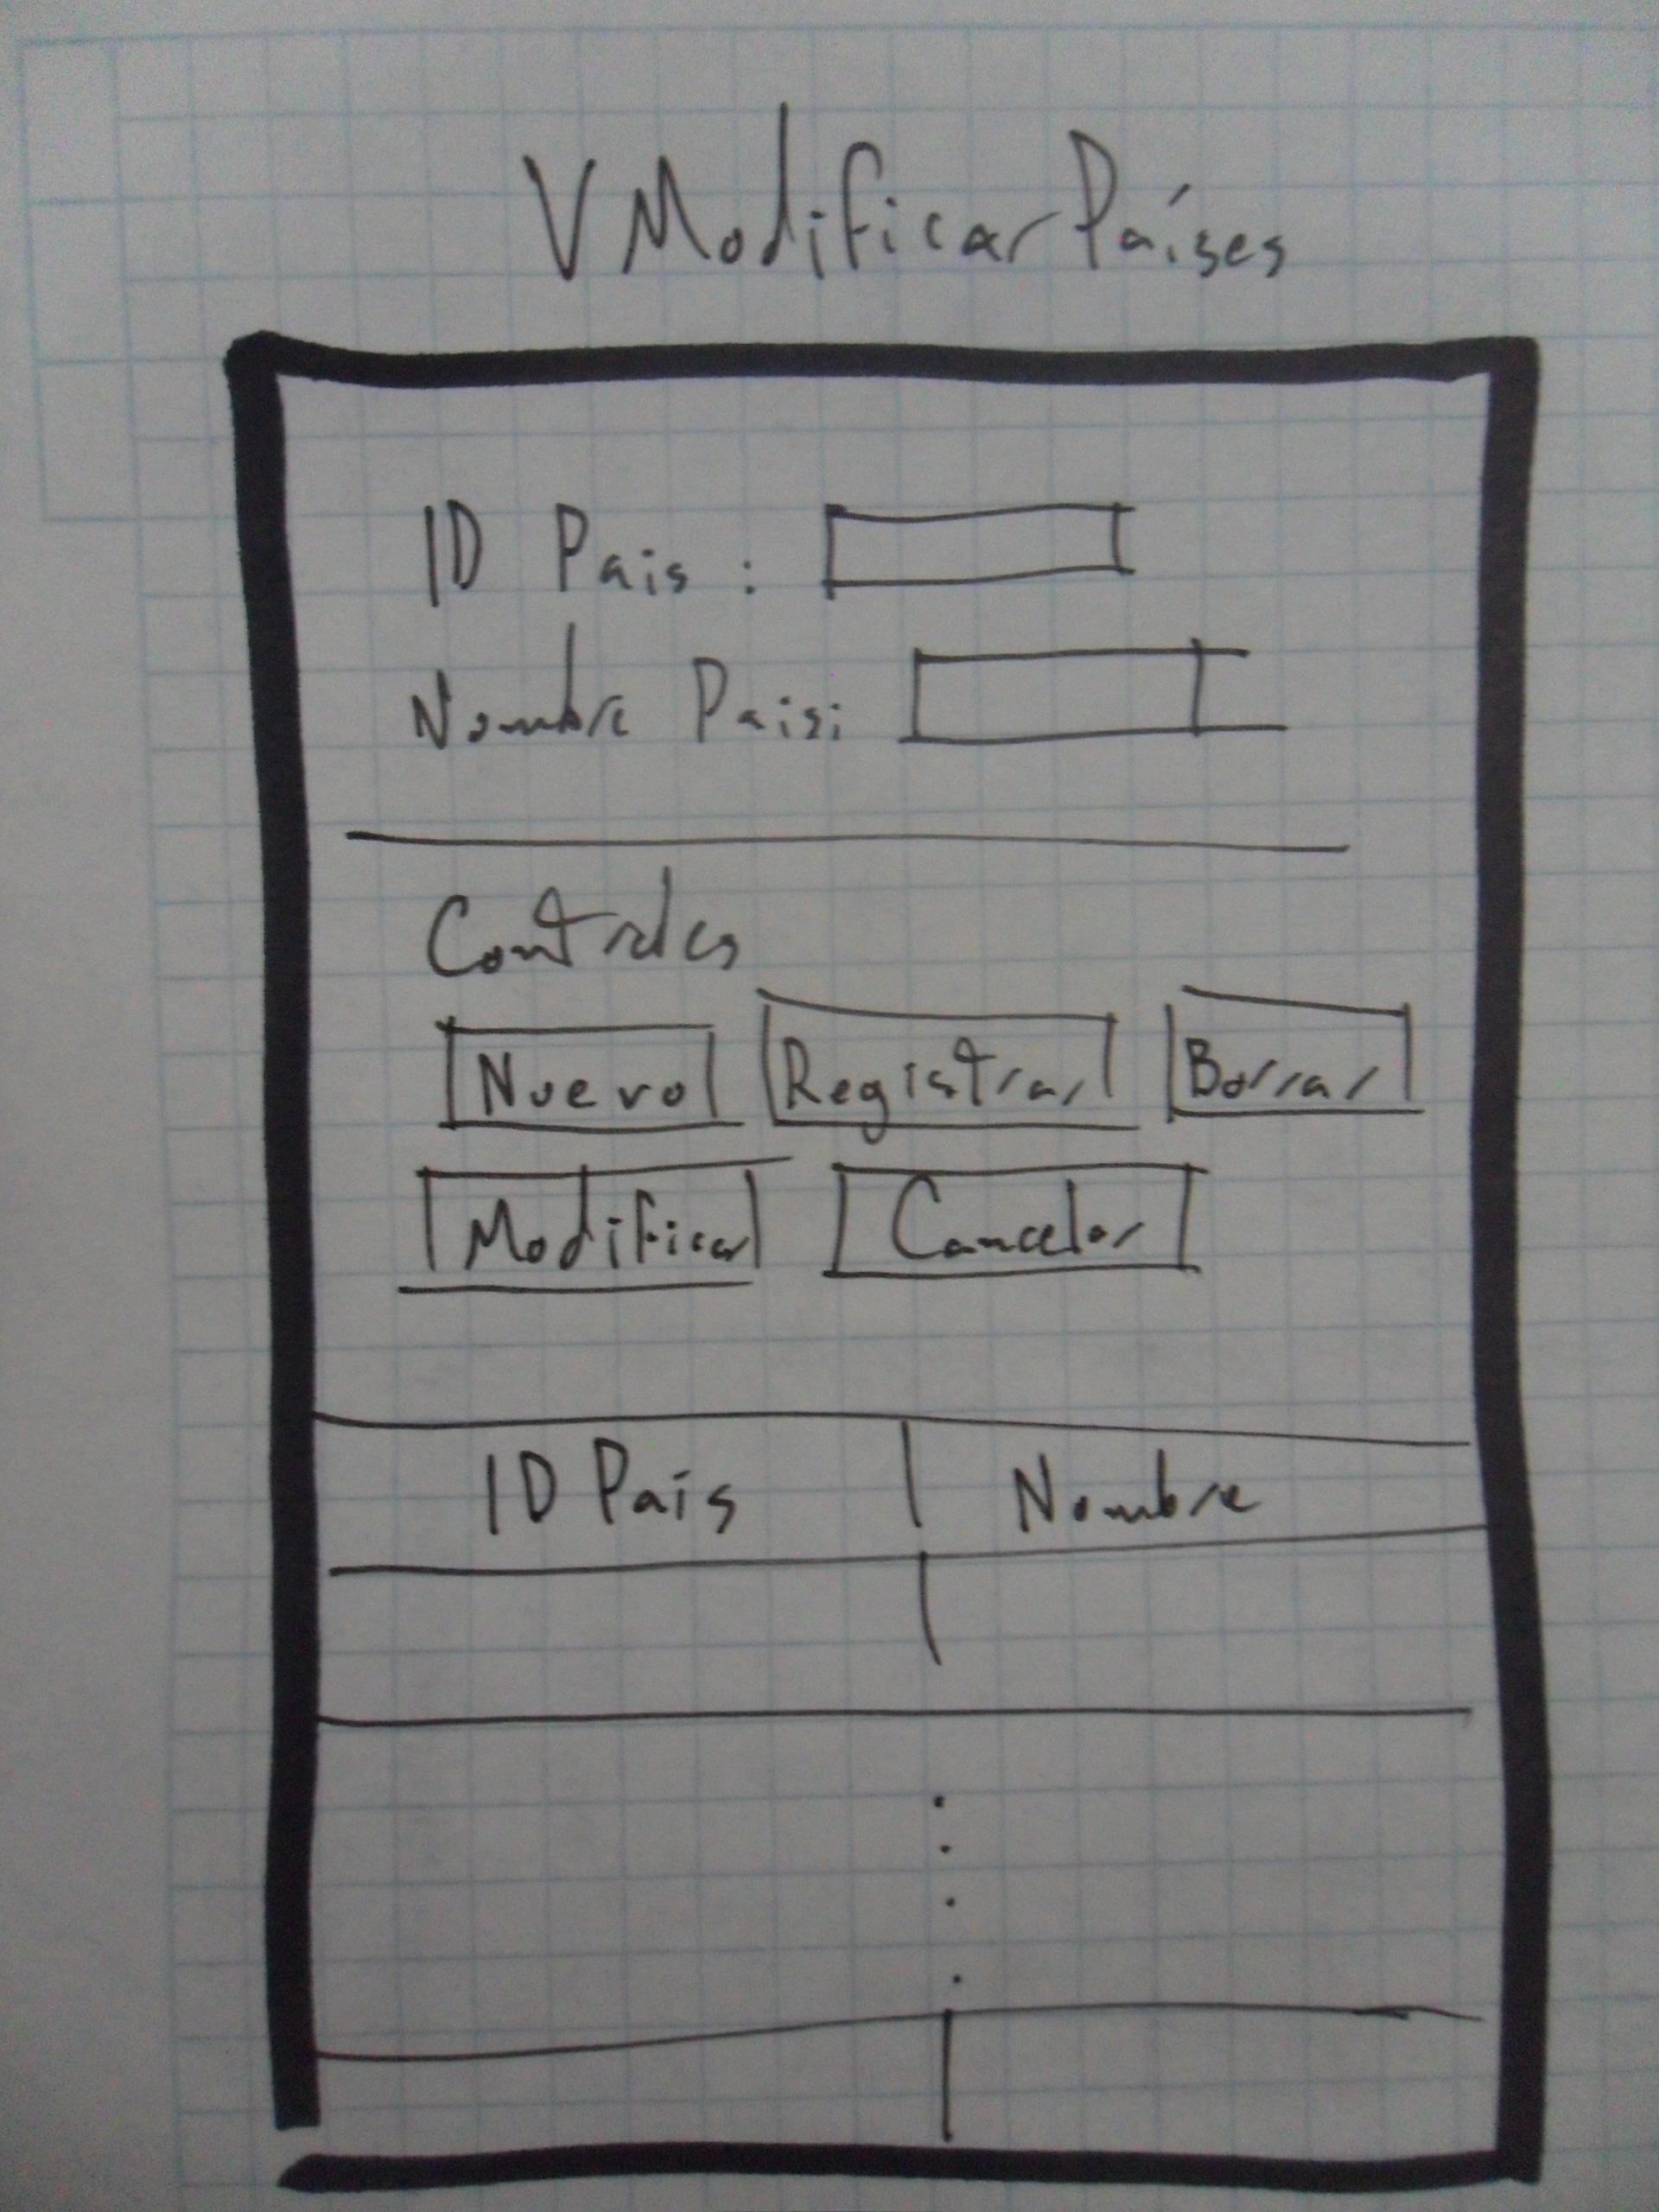 VModificarPaíses
ID Pais :
Nombre Pais:
Controles
Nuevo Registrar Borrar
Modificar Cancelar
ID País Nombre